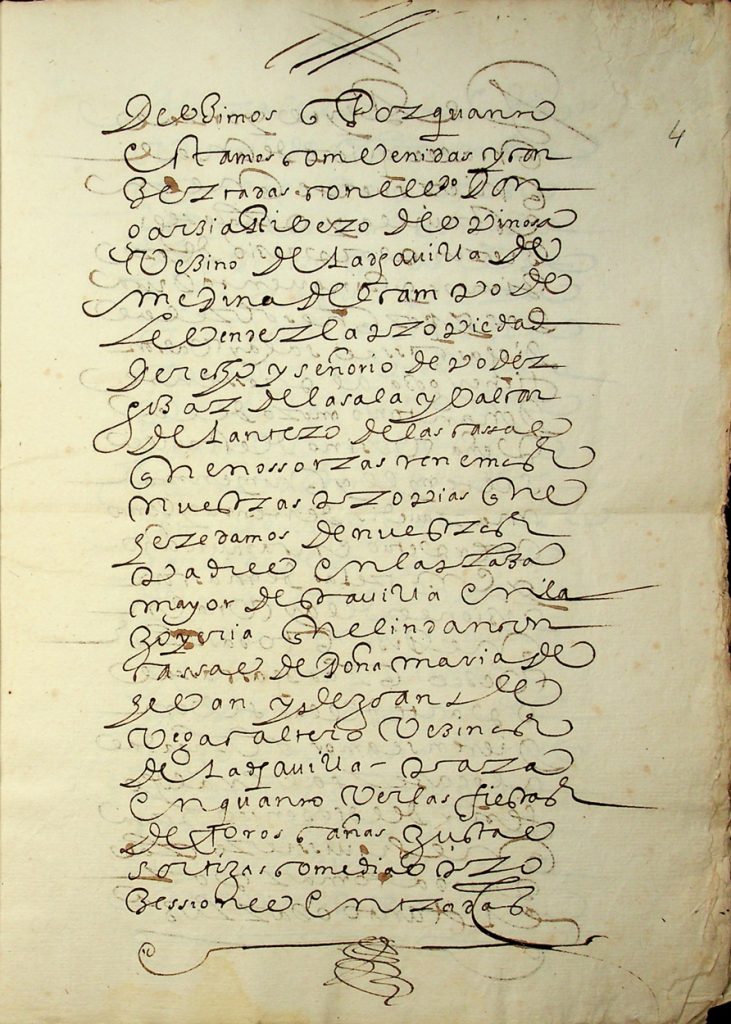 4
Dezimos q Porquanto
estamos combenidas y con
zertadas con el ldo Don
garzia Ribero de espinosa
Vezino de la dha villa de
medina del campo de
le vender la propiedad
derecho y señorio de poder
gozar de la sala y balcon
delantero de las cassas
que nossotras tenemos
nuestras propias que
heredamos de nuestros
padres en la plaza
mayor de esta villa en la
Joyeria que lindan con
cassas de Doña maria de
y de Joan de
Vega Vezinos
de la dha villa – para
en quanto Ver las fiestas
de toros cañas Justas
sortijas comedias pro
zessiones entradas